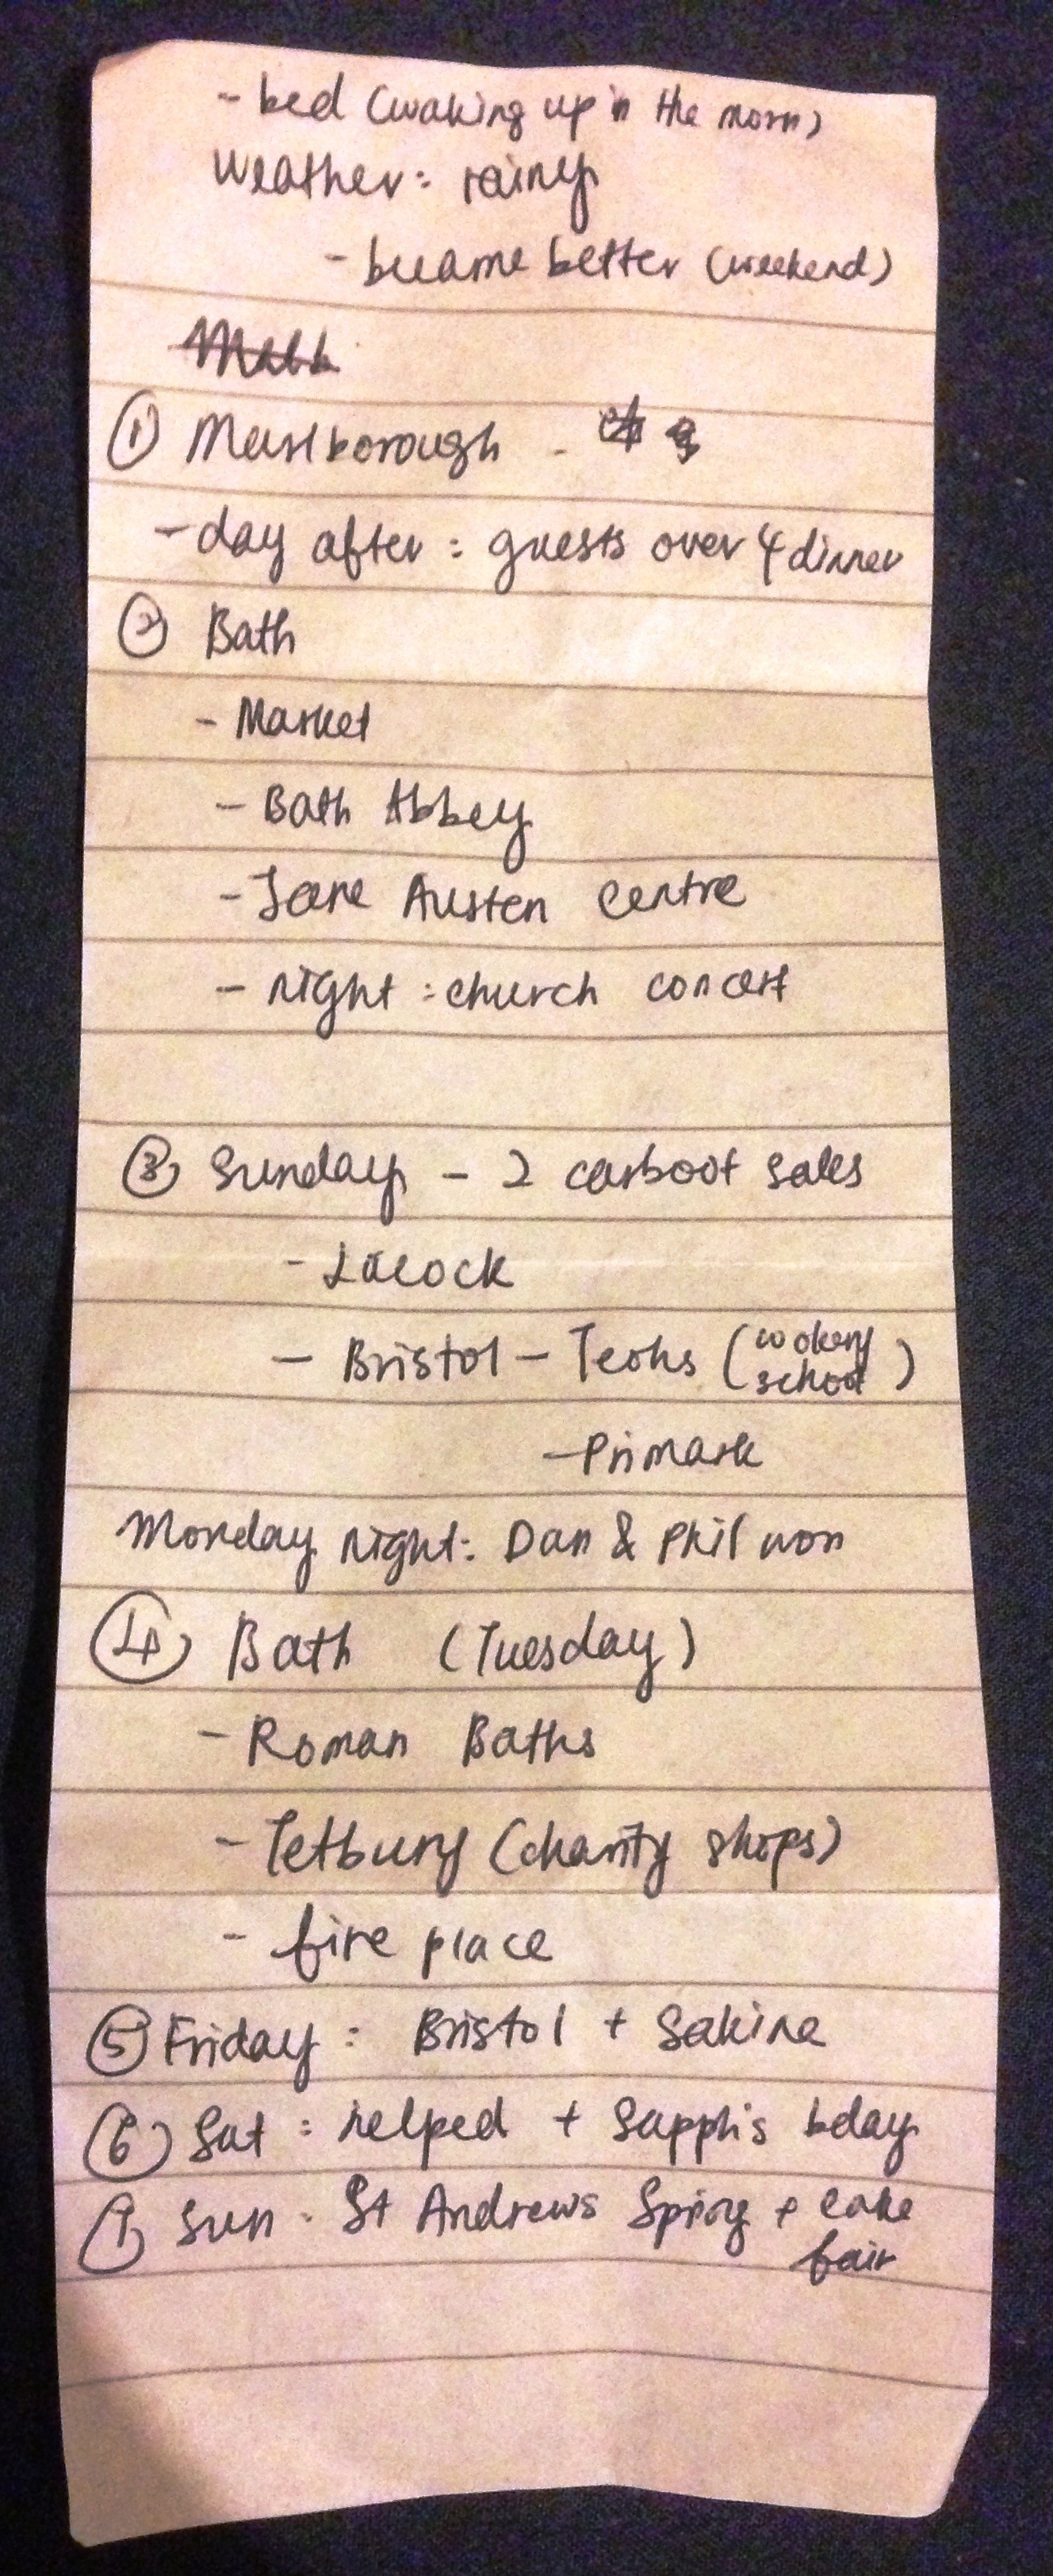 - bed (waking up in the morn)
weather: rainy
- became better (weekend)
① Marlborough -
- day after: guests over 4 dinner
② Bath
- Market
- Bath Abbey
- Jane Austen Centre
- night: church concert
③ Sunday - 2 carboot sales
- Lacock
- Bristol - (cookery school)
- Primark
Monday night: Dan & Phil won
④ Bath (Tuesday)
- Roman Baths
- Tetbury (charity shops)
- fire place
⑤ Friday: Bristol + Sakina
⑥ Sat: helped + bday
⑦ Sun: St Andrews Spring + cake
fair